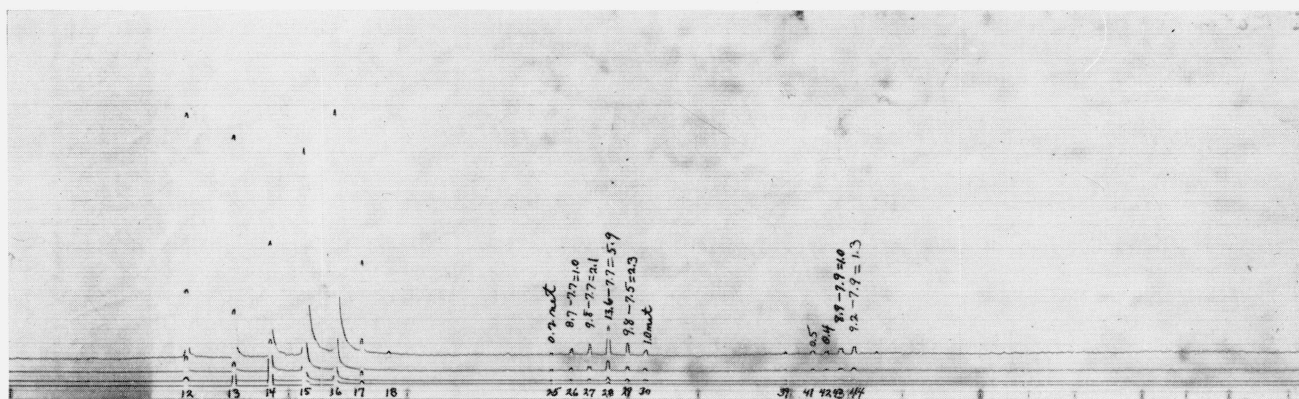 0.2 net
8.7-7.7=1.0
9.8-7.7=2.1
13.6-7.7=5.9
9.8-7.5=2.3
1.0 net
0.5
0.4
8.9-7.9=1.0
9.2-7.9=1.3
12 13 14 15 16 17 18 25 26 27 28 29 30 39 41 42 43 44